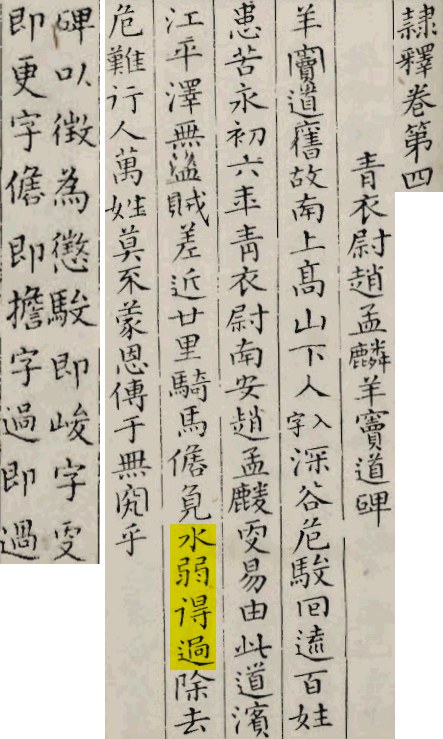 隷釋卷第四
青衣尉趙孟麟羊竇道碑
羊竇道舊故南上高山下人入字深谷危駿回遠百姓
患苦永初六年青衣尉南安趙孟麟㪅易由此道濱
江平澤無盜賊差近廿里騎馬儋負水弱得過除去
危難行人萬姓莫不蒙恩傳于無窮乎
碑以徵為懲駿即峻字㪅
即更字儋即擔字過即過